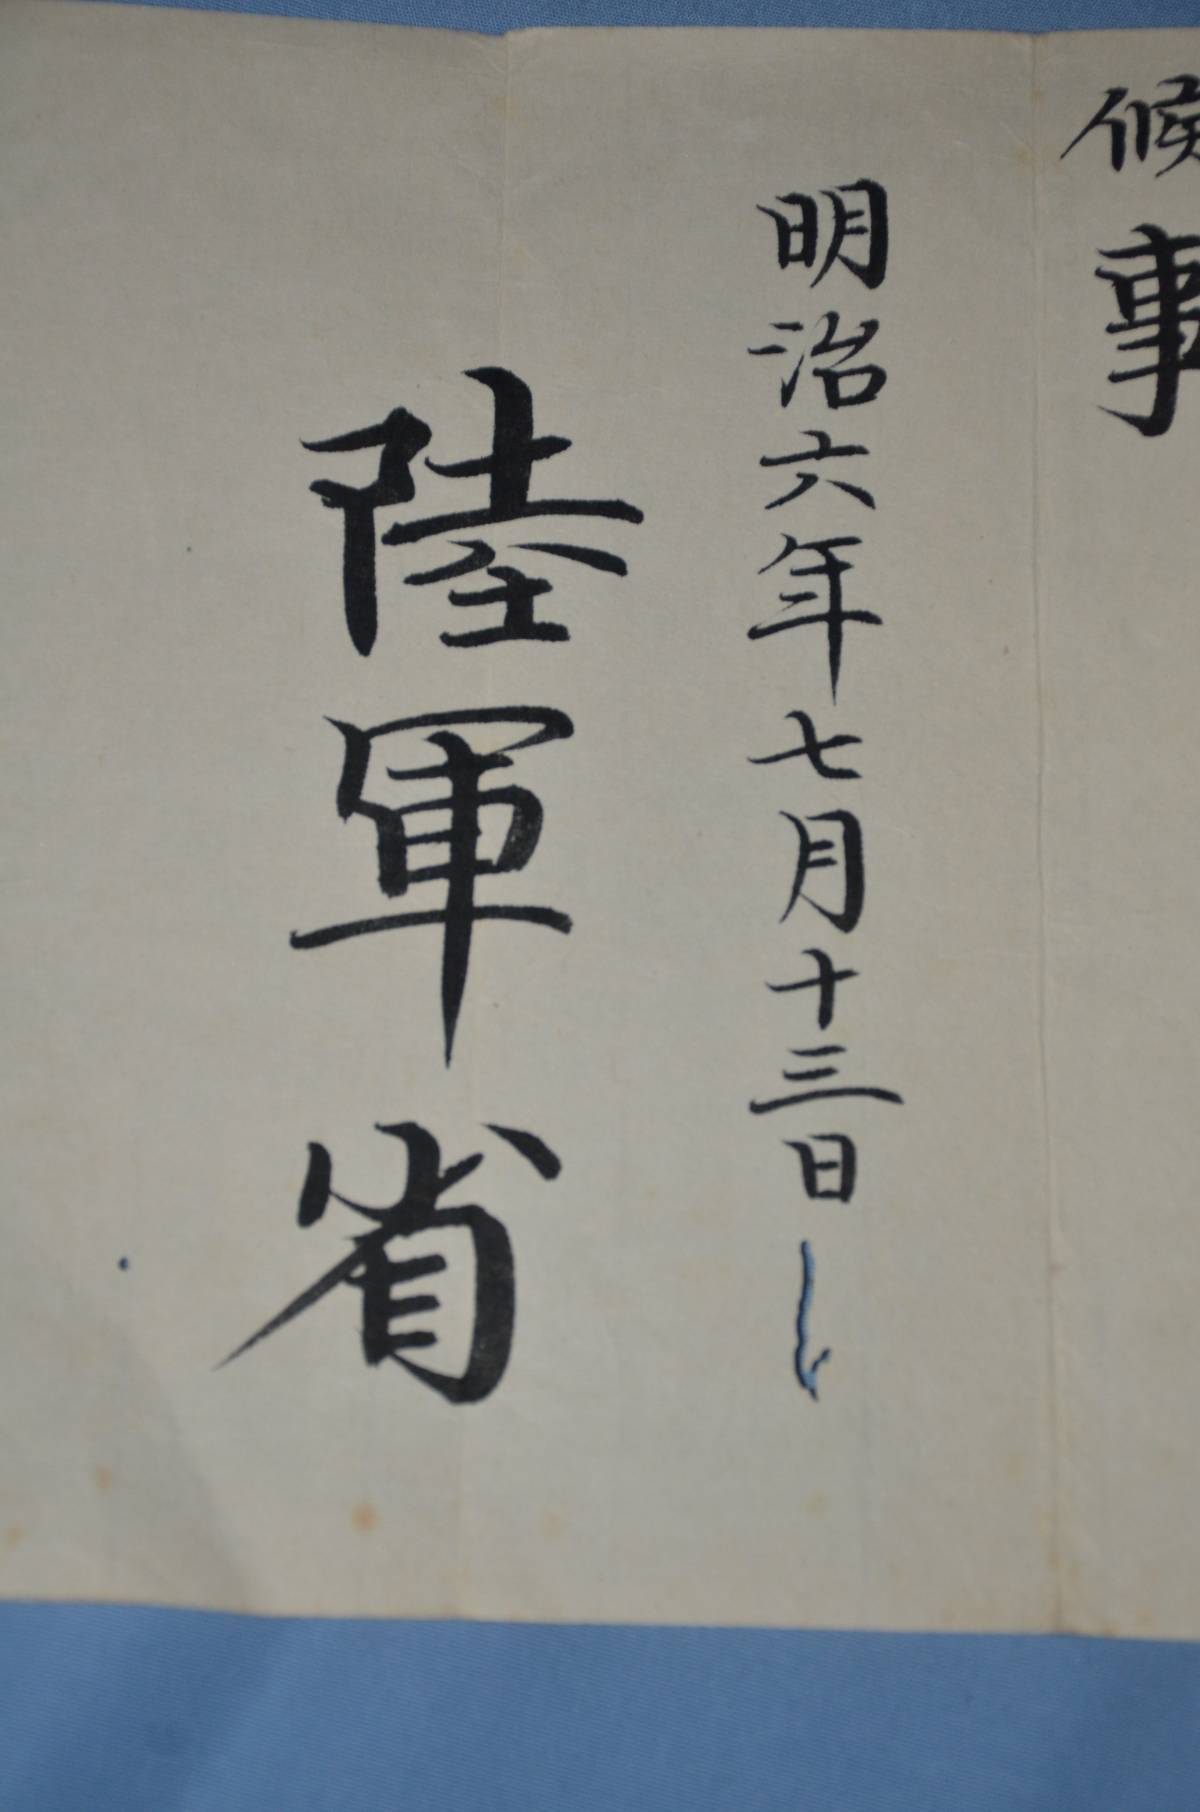 候事
明治六年七月十三日
陸軍省